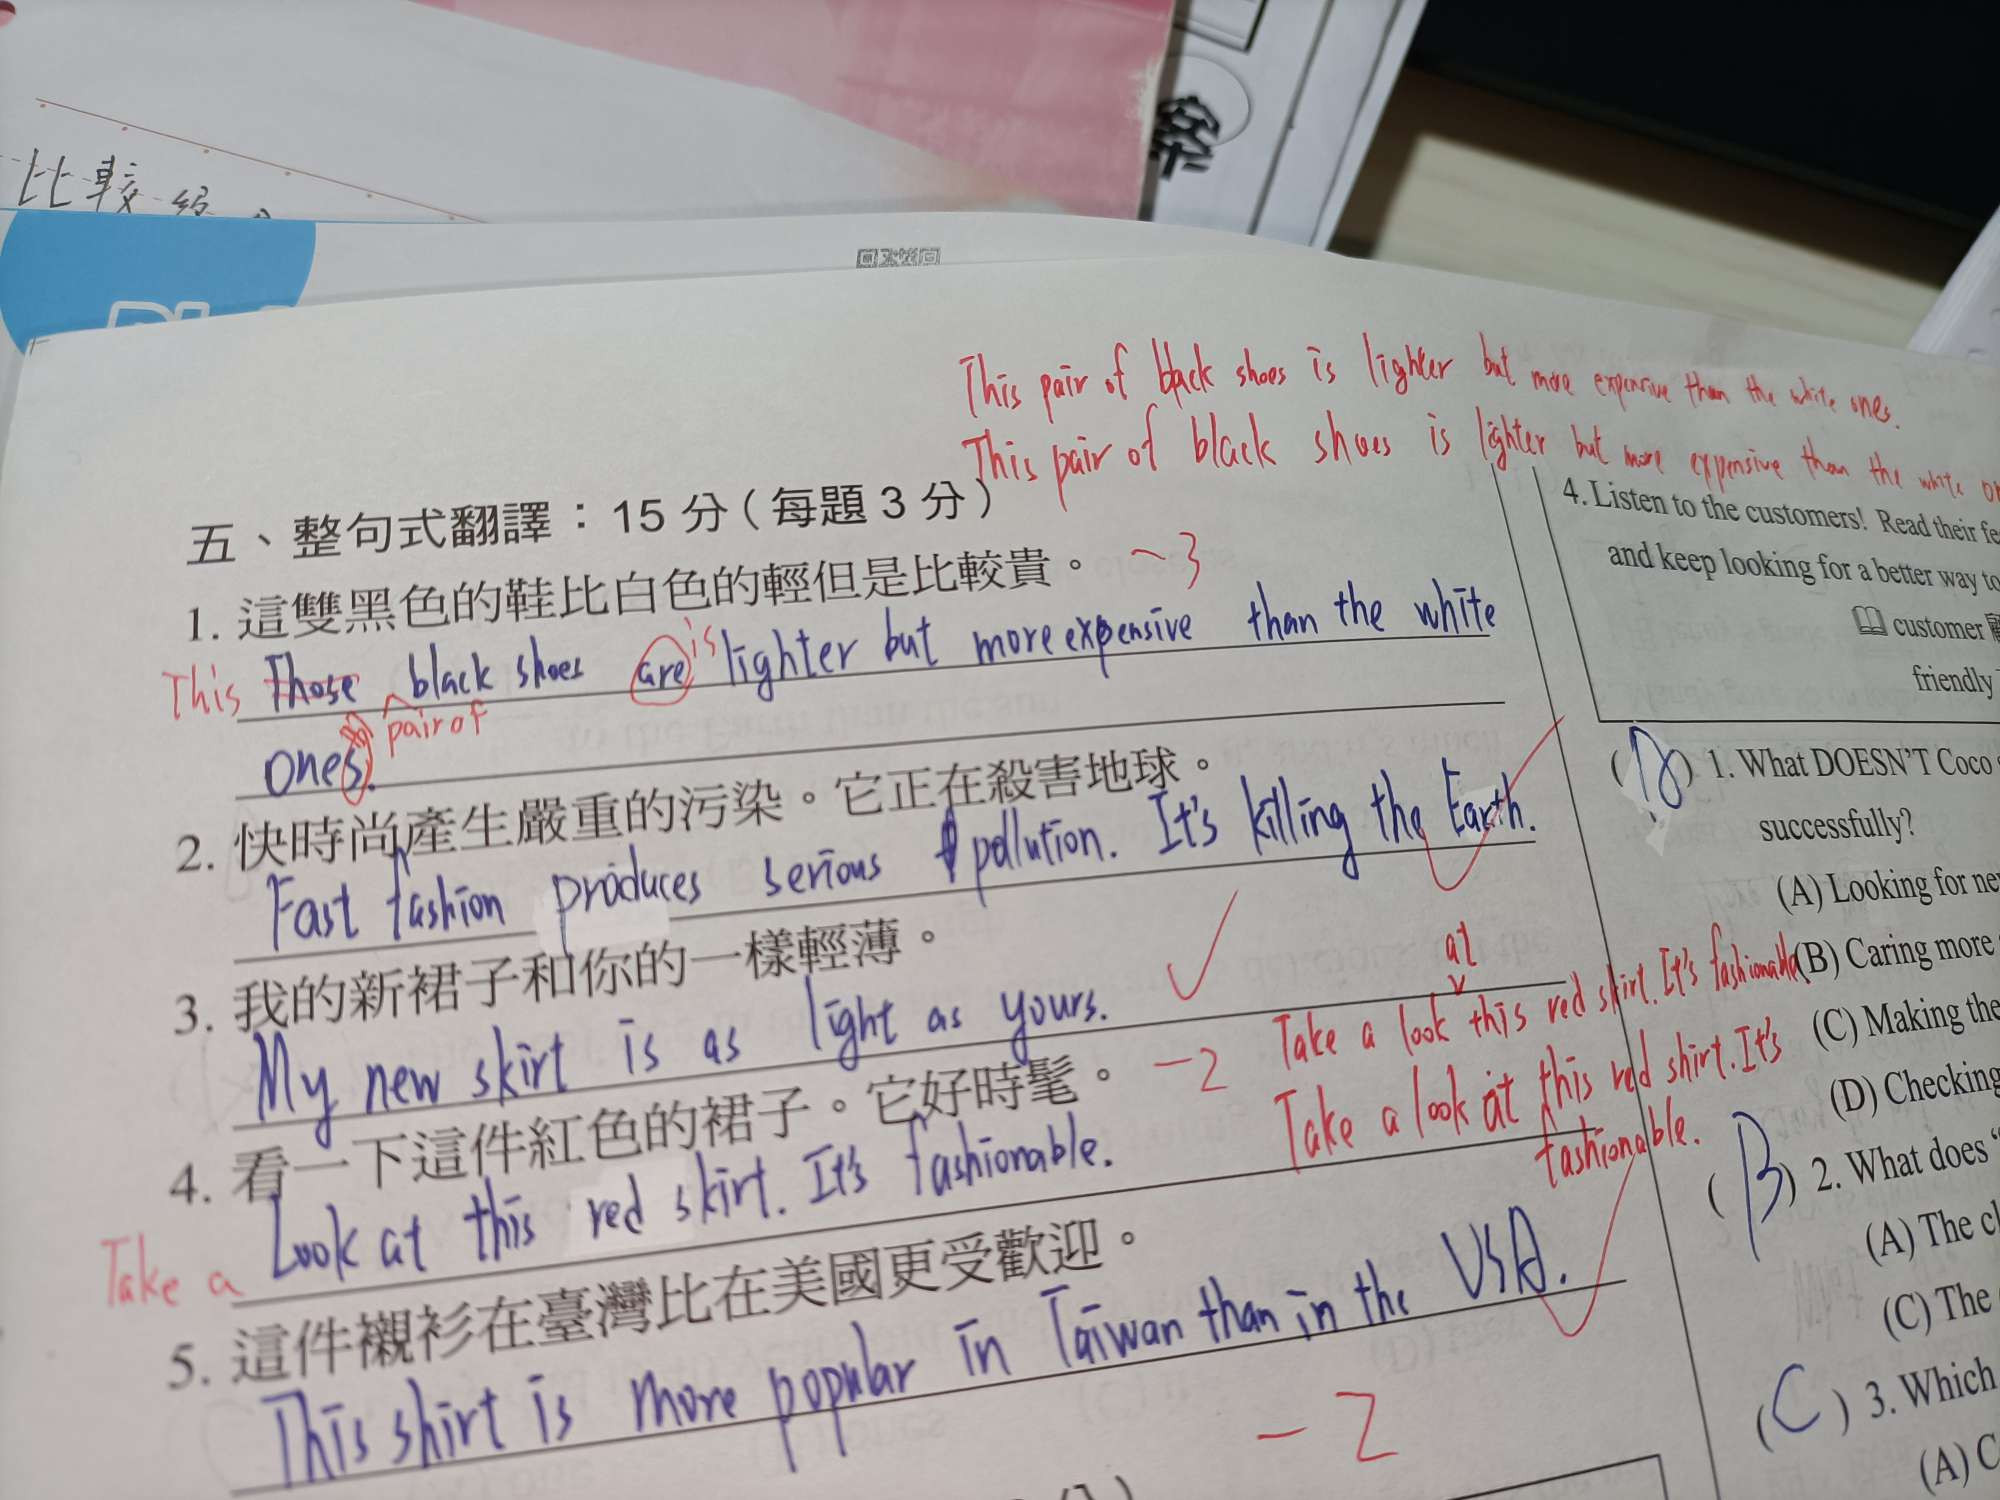 比較
案
This pair of black shoes is lighter but more expensive than the white ones.
This pair of black shoes is lighter but more expensive than the white
五、整句式翻譯：15 分（每題 3 分）
1. 這雙黑色的鞋比白色的輕但是比較貴。 -3
This Those black shoes are is lighter but more expensive than the white
pair of
ones.
2. 快時尚產生嚴重的污染。它正在殺害地球。
Fast fashion produces serious pollution. It's killing the Earth.
3. 我的新裙子和你的一樣輕薄。
My new skirt is as light as yours.
4. 看一下這件紅色的裙子。它好時髦。 -2
at
Take a look this red skirt. It's fashionable.
Take a look at this red shirt. It's
fashionable.
Take a Look at this red skirt. It's fashionable.
5. 這件襯衫在臺灣比在美國更受歡迎。
This shirt is more popular in Taiwan than in the USA.
-2
4. Listen to the customers! Read their
and keep looking for a better way to
customer
friendly
1. What DOESN'T Coco
successfully?
(A) Looking for
(B) Caring more
(C) Making the
(D) Checking
( B ) 2. What does
(A) The
(C) The
( C ) 3. Which
(A)